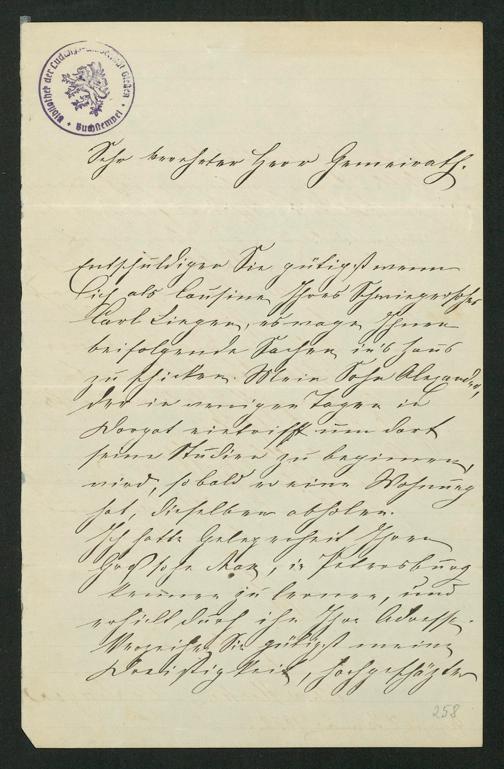 Bibliothek der Ludwigs-Universität Gießen
* Buchstempel *
Sehr verehrter Herr Gemeirath.
Entschuldigen Sie gütigst wenn
ich als Cousine Ihres Schwiegersohnes
Carl Lingen, es wage Ihnen
beifolgende Sachen in's Haus
zu schicken. Mein Sohn Alexander,
der in wenigen Tagen in
Dorpat eintrifft um dort
seine Studien zu beginnen
wird, sobald er eine Wohnung
hat, dieselben abholen.
Ich hatte Gelegenheit Ihren
Herrn Sohn Max, in Petersburg
kennen zu lernen, und
erhielt durch ihn Ihre Adresse.
Verzeihen Sie gütigst meine
Dreistigkeit, hochgeschäzter
258